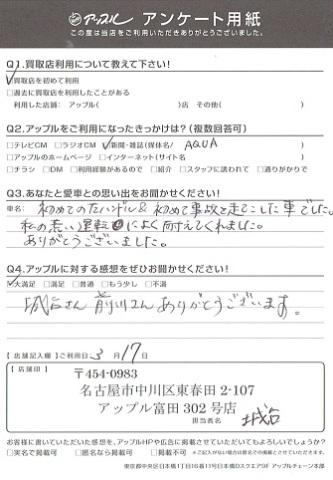 アップル アンケート用紙
この度は当店をご利用いただきありがとうございました。
Q1.買取店利用について教えて下さい!
☑買取店を初めて利用
□過去に買取店を利用したことがある
利用した店舗: アップル( )店 その他( )
Q2.アップルをご利用になったきっかけは?(複数回答可)
□テレビCM □ラジオCM ☑新聞・雑誌(媒体名/ AQUA )
□アップルのホームページ □インターネット(サイト名 )
□チラシ □DM □利用経験があるので □紹介 □スタッフに誘われて □通りがかりで
Q3.あなたと愛車との思い出をお聞かせください!
車名: 初めての左ハンドル& 初めて事故を起こした車でした。
私の荒い運転によく耐えてくれました。
ありがとうございました。
Q4.アップルに対する感想をぜひお聞かせください!
☑大満足 □満足 □普通 □もう少し □不満
城谷さん 前川さん ありがとうございます。
【店舗記入欄】【ご利用日】3月17日
【店舗印】
〒454-0983
名古屋市中川区東春田 2-107
アップル富田 302 号店
担当者名 城谷
お客様に書いていただいた感想を、アップルHPや広告に掲載させていただいてもよろしいでしょうか?
□実名で掲載可 □匿名なら掲載可 □掲載不可
東京都中央区日本橋1丁目16番11号日本橋Dスクエア3F アップルチェーン本部